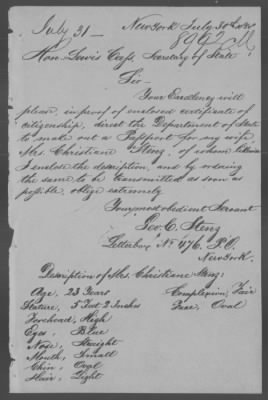 July 31 – New York July 30th 1858
8992
Hon. Lewis Cass, Secretary of State
Sir –
Your Excellency will
please, in proof of enclosed certificate of
citizenship, direct the Department of State
to make out a Passport for my wife
Mrs. Christiane Stenz, of whom
I enclose the description, and by ordering
the same to be transmitted as soon as
possible, oblige extremely
Your most obedient Servant
Geo. C. Stenz
Letterbox No 476. P.O.
New York.
Description of Mrs. Christiane Stenz:
Age, 23 Years Complexion, Fair
Stature, 5 Feet 2 Inches Face, Oval
Forehead, High
Eyes, Blue
Nose, Straight
Mouth, Small
Chin, Oval
Hair, Light